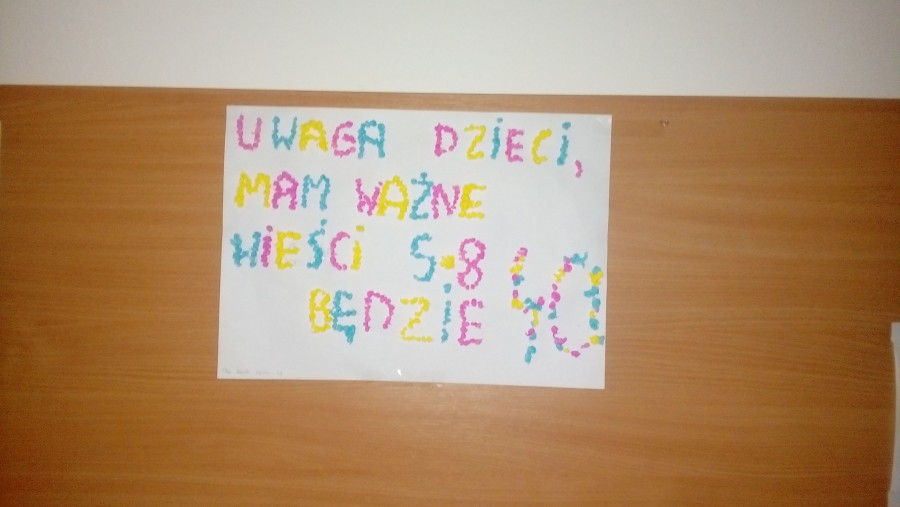 UWAGA DZiECi,
MAM WAŻNE
WiEŚCi 5·8
BĘDZiE 40